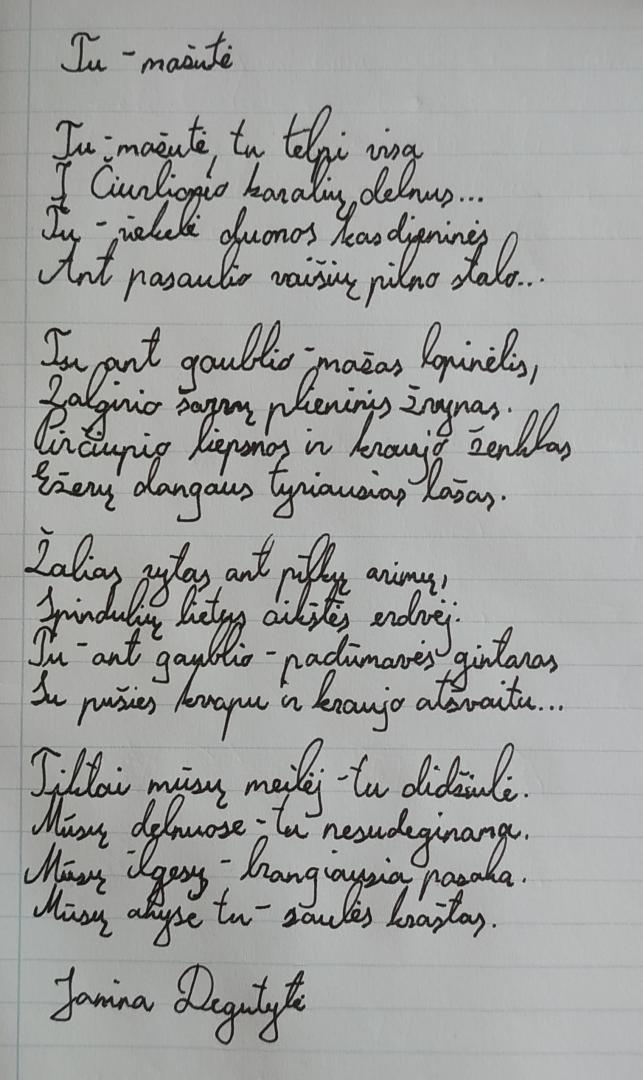 Tu - mažutė
Tu - mažutė, tu telpi visa
Į Čiurlionio karalių delnus...
Tu - riekelė duonos kasdieninės
Ant pasaulio vaišių pilno stalo...
Tu ant gaublio - mažas lopinėlis,
Žalgirio šarvų plieninis žvynas.
Pirčiupio liepsnos ir kraujo ženklas
Ežerų dangaus tyriausias lašas.
Žalias rytas ant pilkų arimų,
Spindulių lietus aikštės erdvėj.
Tu - ant gaublio - padūmavęs gintaras
Su pušies kvapu ir kraujo atšvaitu...
Tiktai mūsų meilėj - tu didžiulė.
Mūsų delnuose - tu nesudeginama.
Mūsų ilgesy - brangiausia pasaka.
Mūsų akyse tu - saulės kraštas.
Janina Degutytė